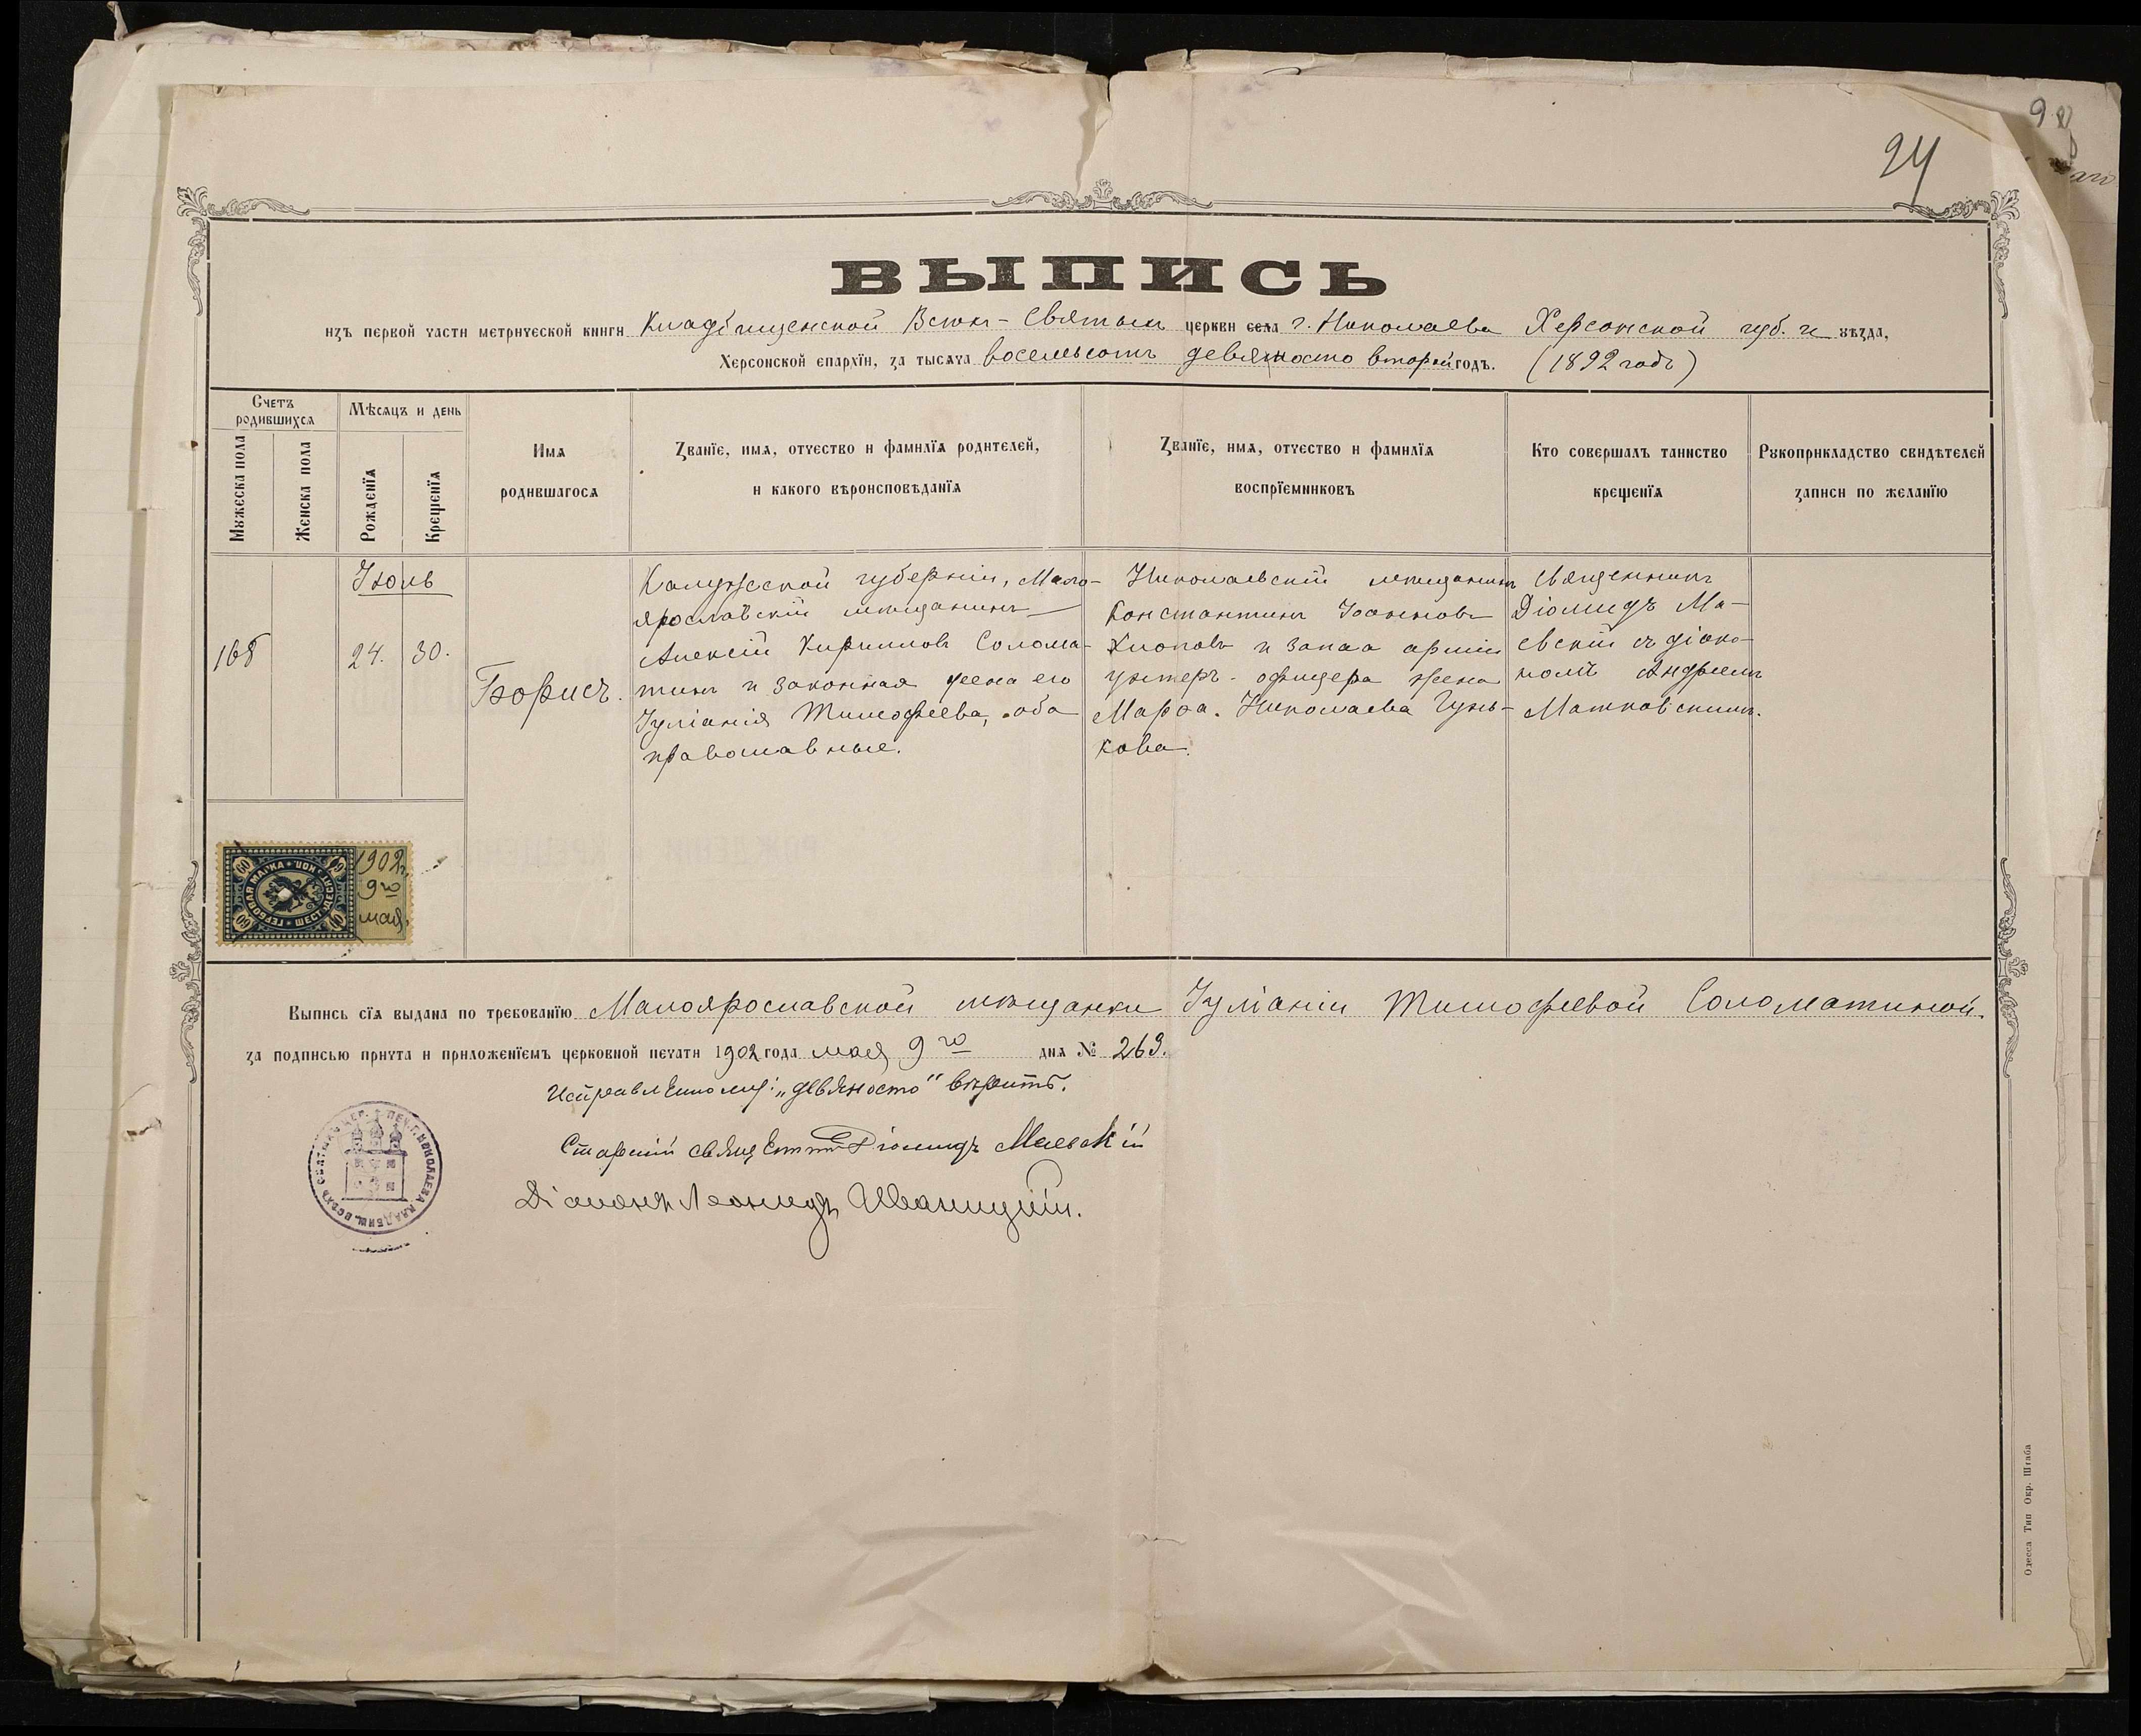 24
ВЫПИСЬ
изъ первой части метрической книги Кладбищенской Всѣхъ-Святыхъ церкви села г. Николаева Херсонской губ. и уѣзда,
Херсонской епархїи, за тысяча восемьсотъ девяносто второй годъ. (1892 годъ)
Счетъ родившихся
Мѣсяцъ и день
Мужеска пола
Женска пола
Рожденїя
Крещенїя
Имя
родившагося
Званїе, имя, отчество и фамилїя родителей,
и какого вѣроисповѣданїя
Званїе, имя, отчество и фамилїя
воспрїемниковъ
Кто совершалъ таинство
крещенїя
Рукоприкладство свидѣтелей
записи по желанїю
Июль
168
24.
30.
Борисъ.
Калужской губерніи, Мало-
ярославскій мѣщанинъ
Алексій Кирилловъ Солома-
тинъ и законная жена его
Іуліанія Тимофеева, оба
православные.
Николаевскій мѣщанинъ
Константинъ Іоанновъ
Клоповъ и запаса арміи
унтеръ-офицера жена
Марѳа Николаева Гунь-
кова.
Священникъ
Діомидъ Ма-
евскій съ діако-
номъ Андреемъ
Матковскимъ.
ГЕРБОВАЯ МАРКА
60
1902 г.
9го
мая.
Выпись сїя выдана по требованїю Малоярославской мѣщанки Іуліаніи Тимофеевой Соломатиной.
за подписью причта и приложенїемъ церковной печати 1902 года мая 9го дня № 269.
Исправленному: „девяносто" вѣрить.
Старшій священникъ Діомидъ Маевскій
Діаконъ Леонидъ Иваницкій.
Одесса Тип Окр. Штаба